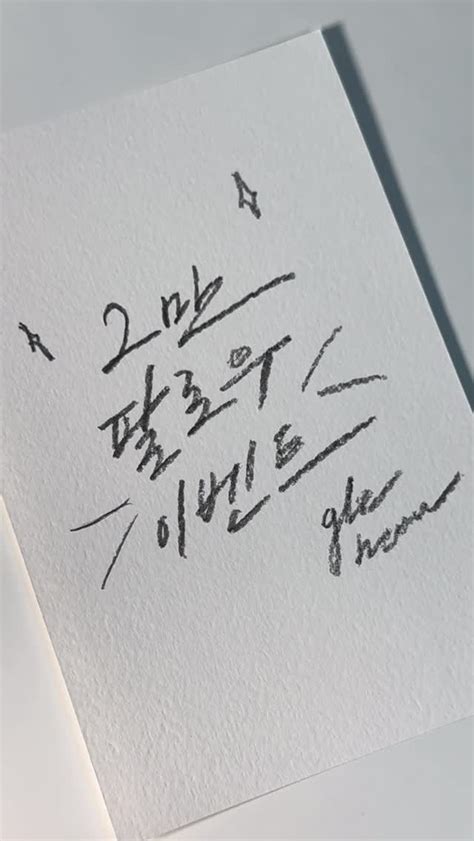 2만
팔로우
이벤트